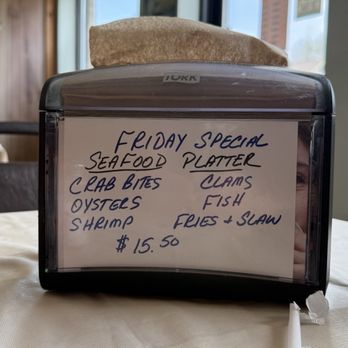 TORK
FRIDAY SPECIAL
SEAFOOD PLATTER
CRAB BITES CLAMS
OYSTERS FISH
SHRIMP FRIES + SLAW
$15.50